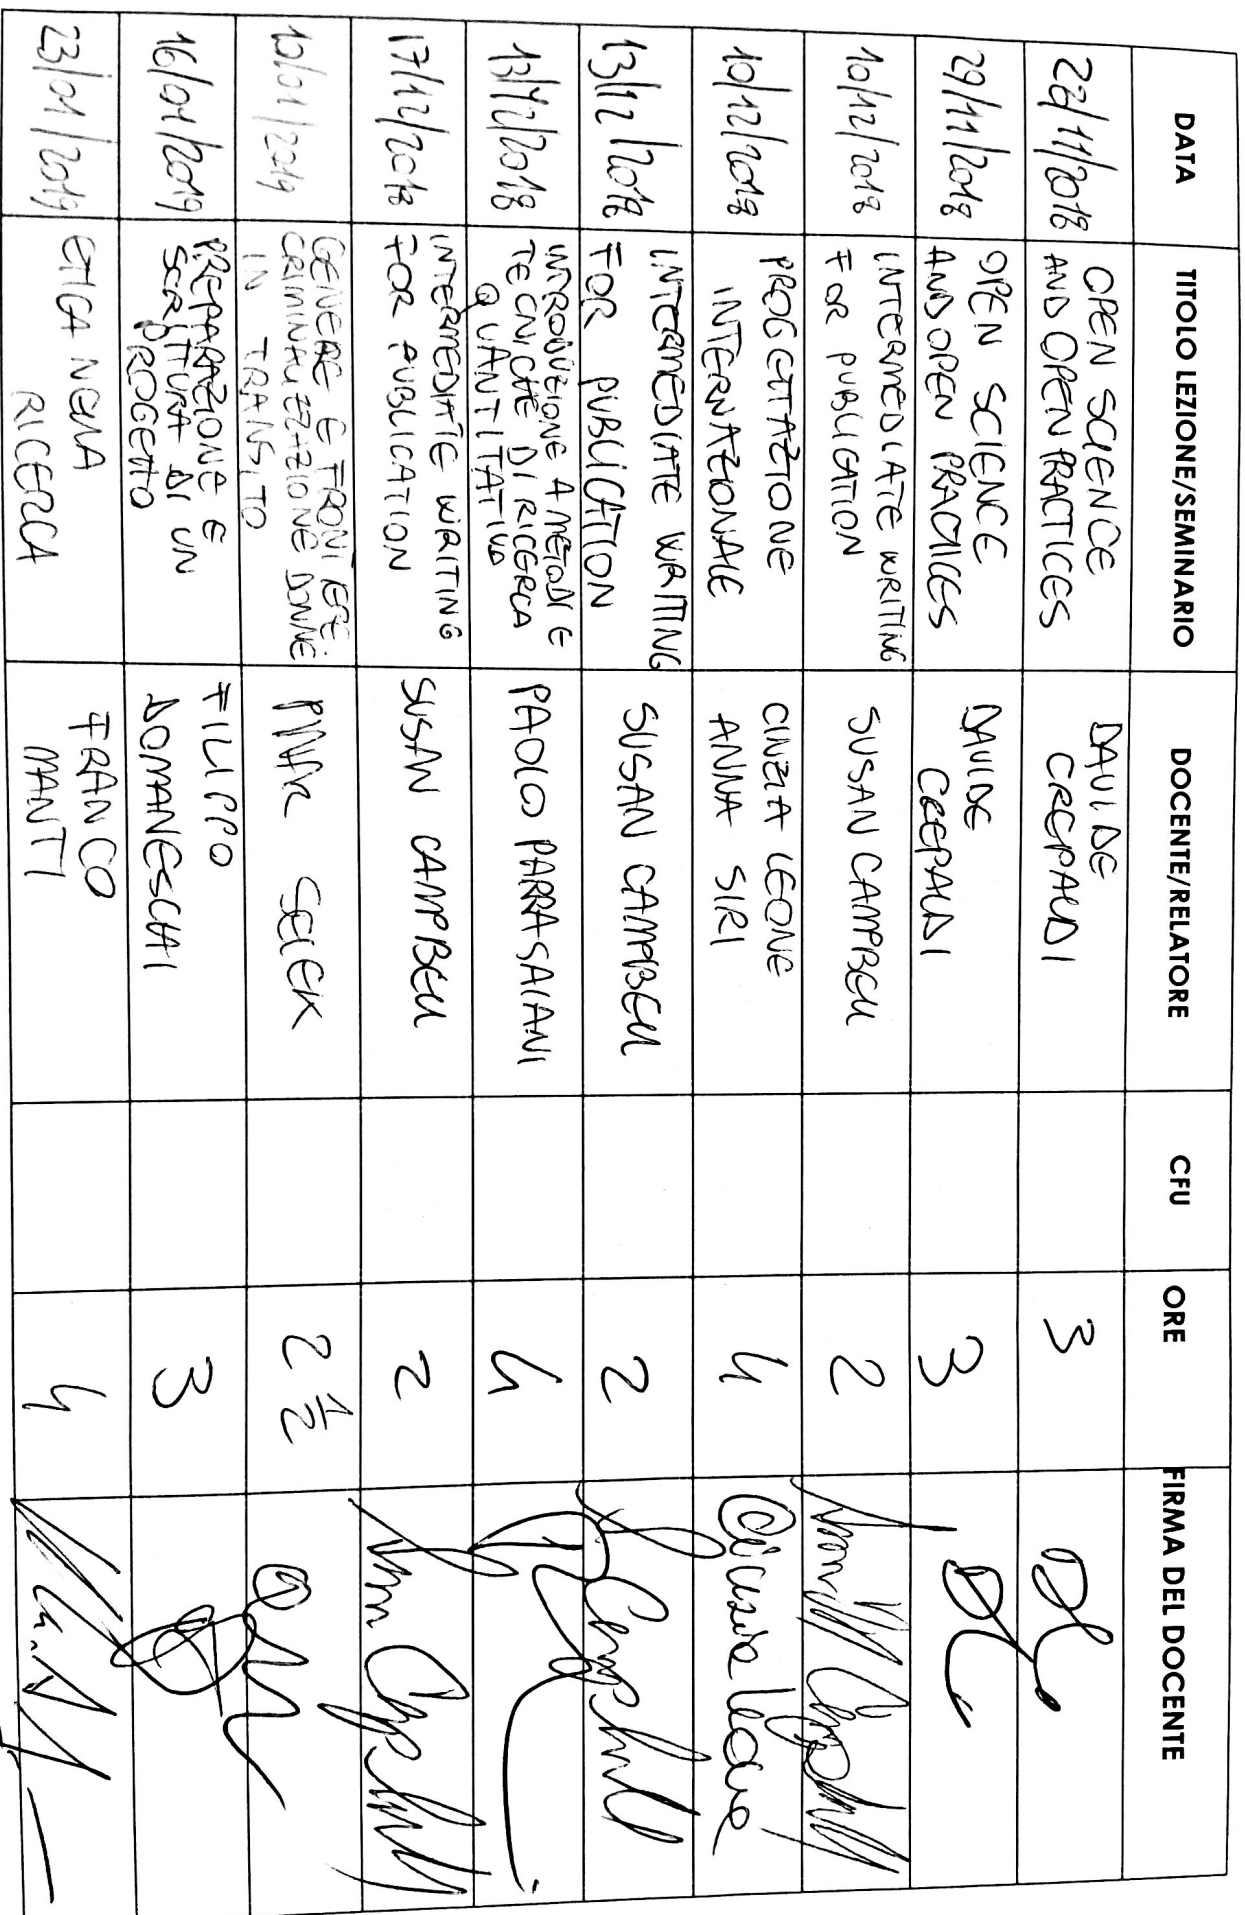 DATA
TITOLO LEZIONE/SEMINARIO
DOCENTE/RELATORE
CFU
ORE
FIRMA DEL DOCENTE
22/11/2018
OPEN SCIENCE
AND OPEN PRACTICES
DAVIDE
CREPALDI
3
DC
29/11/2018
OPEN SCIENCE
AND OPEN PRACTICES
DAVIDE
CREPALDI
3
DC
10/12/2018
INTERMEDIATE WRITING
FOR PUBLICATION
SUSAN CAMPBELL
2
10/12/2018
PROGETTAZIONE
INTERNAZIONALE
CINZIA LEONE
ANNA SIRI
4
Cinzia Leone
13/12/2018
INTERMEDIATE WRITING
FOR PUBLICATION
SUSAN CAMPBELL
2
Campbell
13/12/2018
INTRODUZIONE A METODI E
TECNICHE DI RICERCA
QUANTITATIVA
PAOLO PARRA SAIANI
4
17/12/2018
INTERMEDIATE WRITING
FOR PUBLICATION
SUSAN CAMPBELL
2
10/01/2019
GENERE E FRONTIERE:
CRIMINALIZZAZIONE DONNE
IN TRANSITO
PINAR SELEK
2 1/2
16/01/2019
PREPARAZIONE E
SCRITTURA DI UN
PROGETTO
FILIPPO
DOMANESCHI
3
23/01/2019
ETICA NELLA
RICERCA
FRANCO
MANTI
4